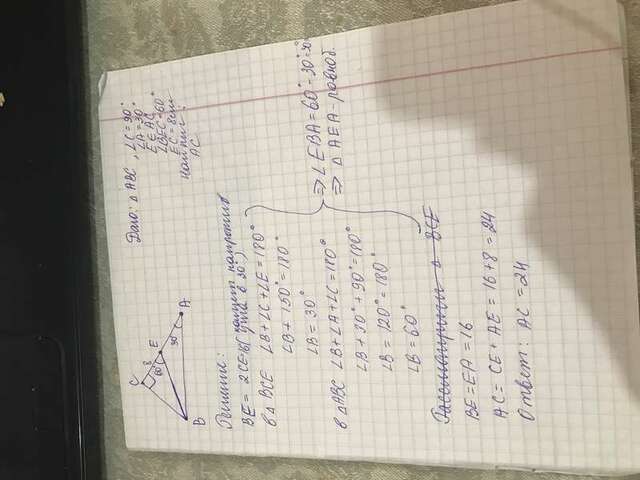 Дано: △ABC, ∠C=90°
∠A=30°
E∈AC
∠BEC=60°
EC=8см
AC
C
8
60
E
30
A
B
Решение:
BE = 2CE=16(катет напротив
угла в 30°)
в △ BCE ∠B+∠C+∠E=180°
∠B+150°=180°
∠B=30°
в △ABC ∠B+∠A+∠C=180°
∠B+30°+90°=180°
∠B=120°=180°
∠B=60°
=> ∠EBA=60°-30°=30°
=> △ AEA-равноб.
Рассмотрим △ BCE
BE=EA=16
AC=CE+AE=16+8=24
Ответ: AC=24